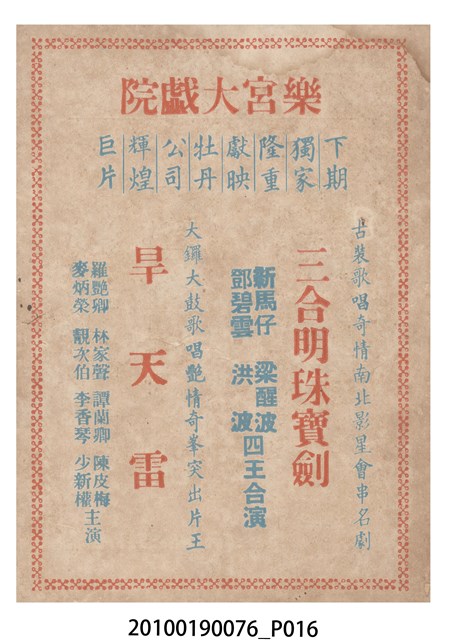 樂宮大戲院
下期
獨家
隆重
獻映
牡丹
公司
輝煌
巨片
古裝歌唱奇情南北影星會串名劇
三合明珠寶劍
新馬仔 梁醒波
鄧碧雲 洪波
四王合演
大鑼大鼓歌唱艷情奇峯突出片王
旱天雷
羅艷卿 林家聲 譚蘭卿 陳皮梅
麥炳榮 靚次伯 李香琴 少新權
主演
20100190076_P016